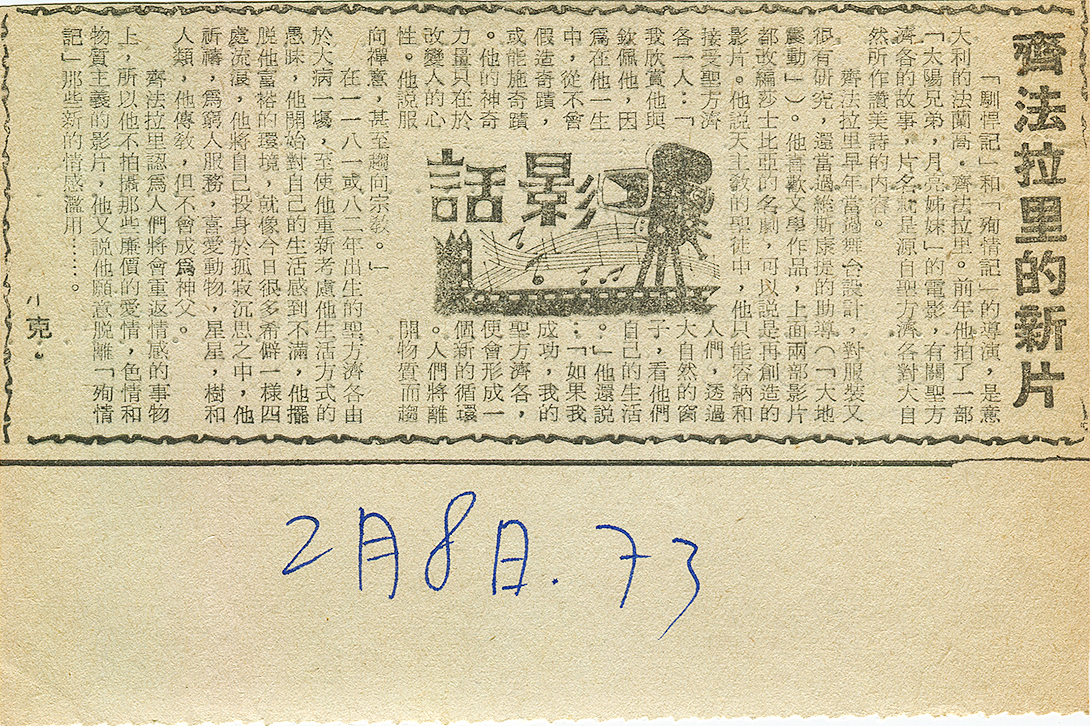 齊法拉里的新片
「馴悍記」和「殉情記」的導演,是意
大利的法蘭高·齊法拉里。前年他拍了一部
「太陽兄弟,月亮姊妹」的電影,有關聖方
濟各的故事,片名就是源自聖方濟各對大自
然所作讚美詩的內容。
齊法拉里早年當過舞台設計,對服裝又
很有研究,還當過維斯康提的助導(「大地
震動」)。他喜歡文學作品,上面兩部影片
都改編莎士比亞的名劇,可以說是再創造的
影片。他說天主教的聖徒中,他只能容納和
接受聖方濟
各一人:「
我欣賞他與
欽佩他,因
爲在他一生
中,從不會
假造奇蹟,
或能施奇蹟
。他的神奇
力量只在於
改變人的心
性。他說服
影話
人們,透過
大自然的窗
子,看他們
自己的生活
。」他還說
:「如果我
成功,我的
聖方濟各,
便會形成一
個新的循環
。人們將離
開物質而趨
向禪意,甚至趨向宗教。」
在一一八一或八二年出生的聖方濟各由
於大病一塲,至使他重新考慮他生活方式的
愚昧,他開始對自己的生活感到不滿,他擺
脫他富裕的環境,就像今日很多希僻一樣四
處流淚,他將自己投身於孤寂沉思之中,他
祈禱,爲窮人服務,喜愛動物,星星,樹和
人類,他傳教,但不會成爲神父。
齊法拉里認爲人們將會重返情感的事物
上,所以他不拍攝那些廉價的愛情,色情和
物質主義的影片,他又說他願意脫離「殉情
記」那些新的情感濫用……。
小克。
2月8日.73